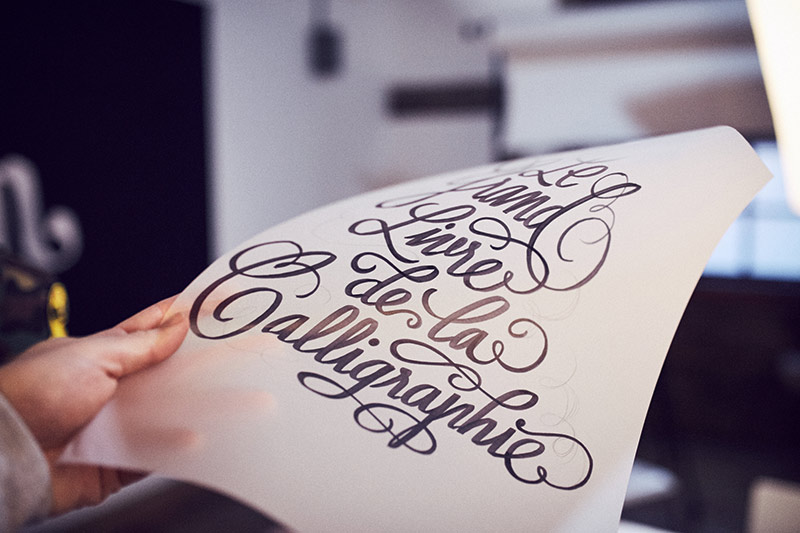 Le
Grand
Livre
de la
Calligraphie